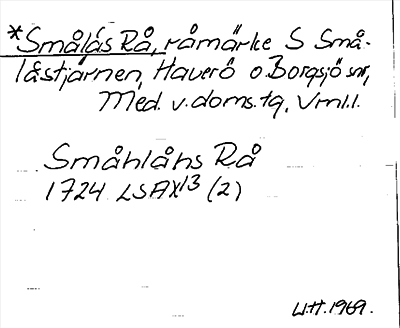 *Smålås Rå, råmärke S Små-
låstjärnen, Haverö o. Borgsjö snr,
Med. v. doms. tg, Vrnl.l.
Småhlåhs Rå
1724 LSA X13 (2)
U.H. 1969.